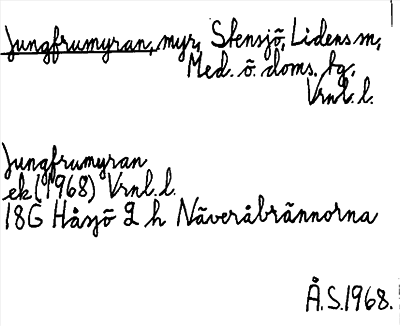 Jungfrumyran, myr, Stensjö, Lidens sn,
Med. ö. doms. tg.
Vrnl. l.
Jungfrumyran
ek (1968) Vrnl. l.
18G Håsjö 2 h Näveråbrännorna
Å.S.1968.